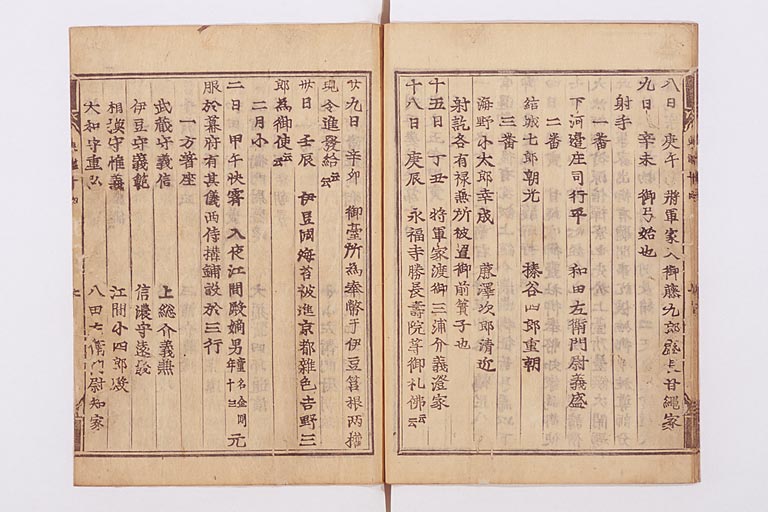 八日 庚午 將軍家入御藤九郎盛長甘縄家
九日 辛未 御弓始也
射手
一番
下河邊庄司行平 和田左衛門尉義盛
二番
結城七郎朝光 榛谷四郎重朝
三番
海野小太郎幸氏 藤澤次郎清近
射訖各有禄兼所被置御前簀子也
十五日 丁丑 將軍家渡御三浦介義澄家
十八日 庚辰 永福寺勝長壽院等御礼佛云云
廿九日 辛卯 御臺所為奉幣于伊豆筥根兩權
現令進發給云云
卅日 壬辰 伊豆國海苔被進京都雜色吉野三
郎為御使云云
二月小
二日 甲午快霽 入夜江間殿嫡男童名金剛年十三元
服於幕府有其儀西侍搆鋪設於三行
一方著座
武蔵守義信 上総介義兼
伊豆守義範 信濃守遠
相摸守惟義 江間小四郎殿
大和守重弘 八田衛門尉知家